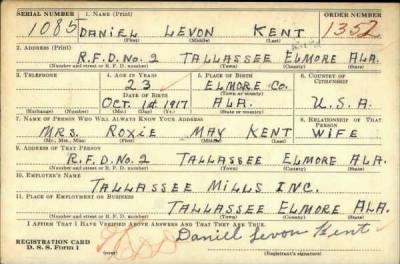 SERIAL NUMBER 1. NAME (Print) ORDER NUMBER
1085 DANIEL LEVON KENT 1352
(First) (Middle) (Last)
2. ADDRESS (Print)
R.F.D. No. 2 TALLASSEE ELMORE ALA.
(Number and street or R. F. D. number) (Town) (County) (State)
3. TELEPHONE 4. AGE IN YEARS 5. PLACE OF BIRTH 6. COUNTRY OF CITIZENSHIP
23 ELMORE CO.
DATE OF BIRTH (Town or county)
OCT. 1st 1917 ALA. U.S.A.
(Exchange) (Number) (Mo.) (Day) (Yr.) (State or country)
7. NAME OF PERSON WHO WILL ALWAYS KNOW YOUR ADDRESS 8. RELATIONSHIP OF THAT PERSON
MRS. ROXIE MAY KENT WIFE
(Mr., Mrs., Miss) (First) (Middle) (Last)
9. ADDRESS OF THAT PERSON
R.F.D. No. 2 TALLASSEE ELMORE ALA.
(Number and street or R. F. D. number) (Town) (County) (State)
10. EMPLOYER'S NAME
TALLASSEE MILLS INC.
11. PLACE OF EMPLOYMENT OR BUSINESS
TALLASSEE ELMORE ALA.
(Number and street or R. F. D. number) (Town) (County) (State)
I AFFIRM THAT I HAVE VERIFIED ABOVE ANSWERS AND THAT THEY ARE TRUE.
REGISTRATION CARD
D. S. S. Form 1
Daniel Levon Kent
(Registrant's signature)